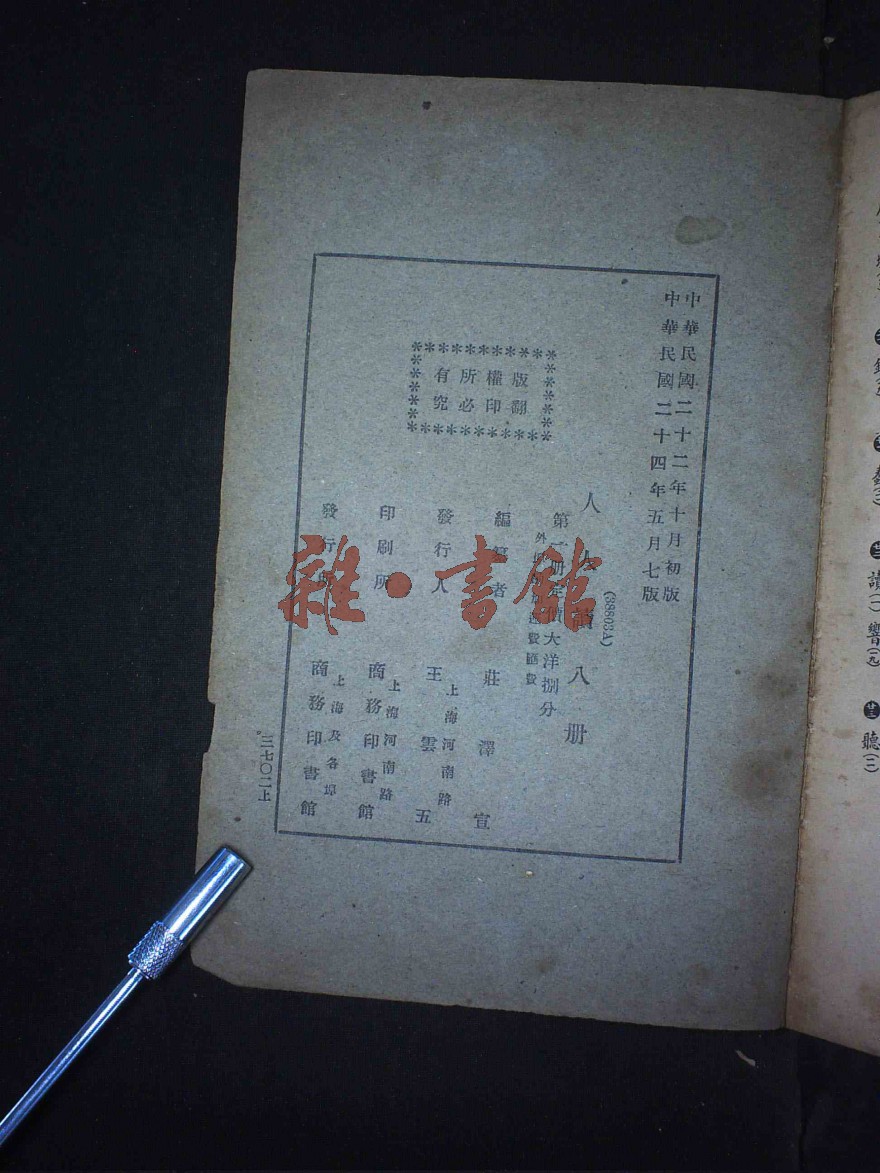 中華民國二十二年十月初版
中華民國二十四年五月七版
(38603A)
人人讀八册
第一册定價大洋捌分
外埠酌加運費匯費
編纂者 莊澤宣
發行人 王雲五
上海河南路
印刷所 商務印書館
上海河南路
發行所 商務印書館
上海及各埠
版權所有
翻印必究
三七〇二上
雜·書館
讀(一)
響(一九)
廿三 聽(二)